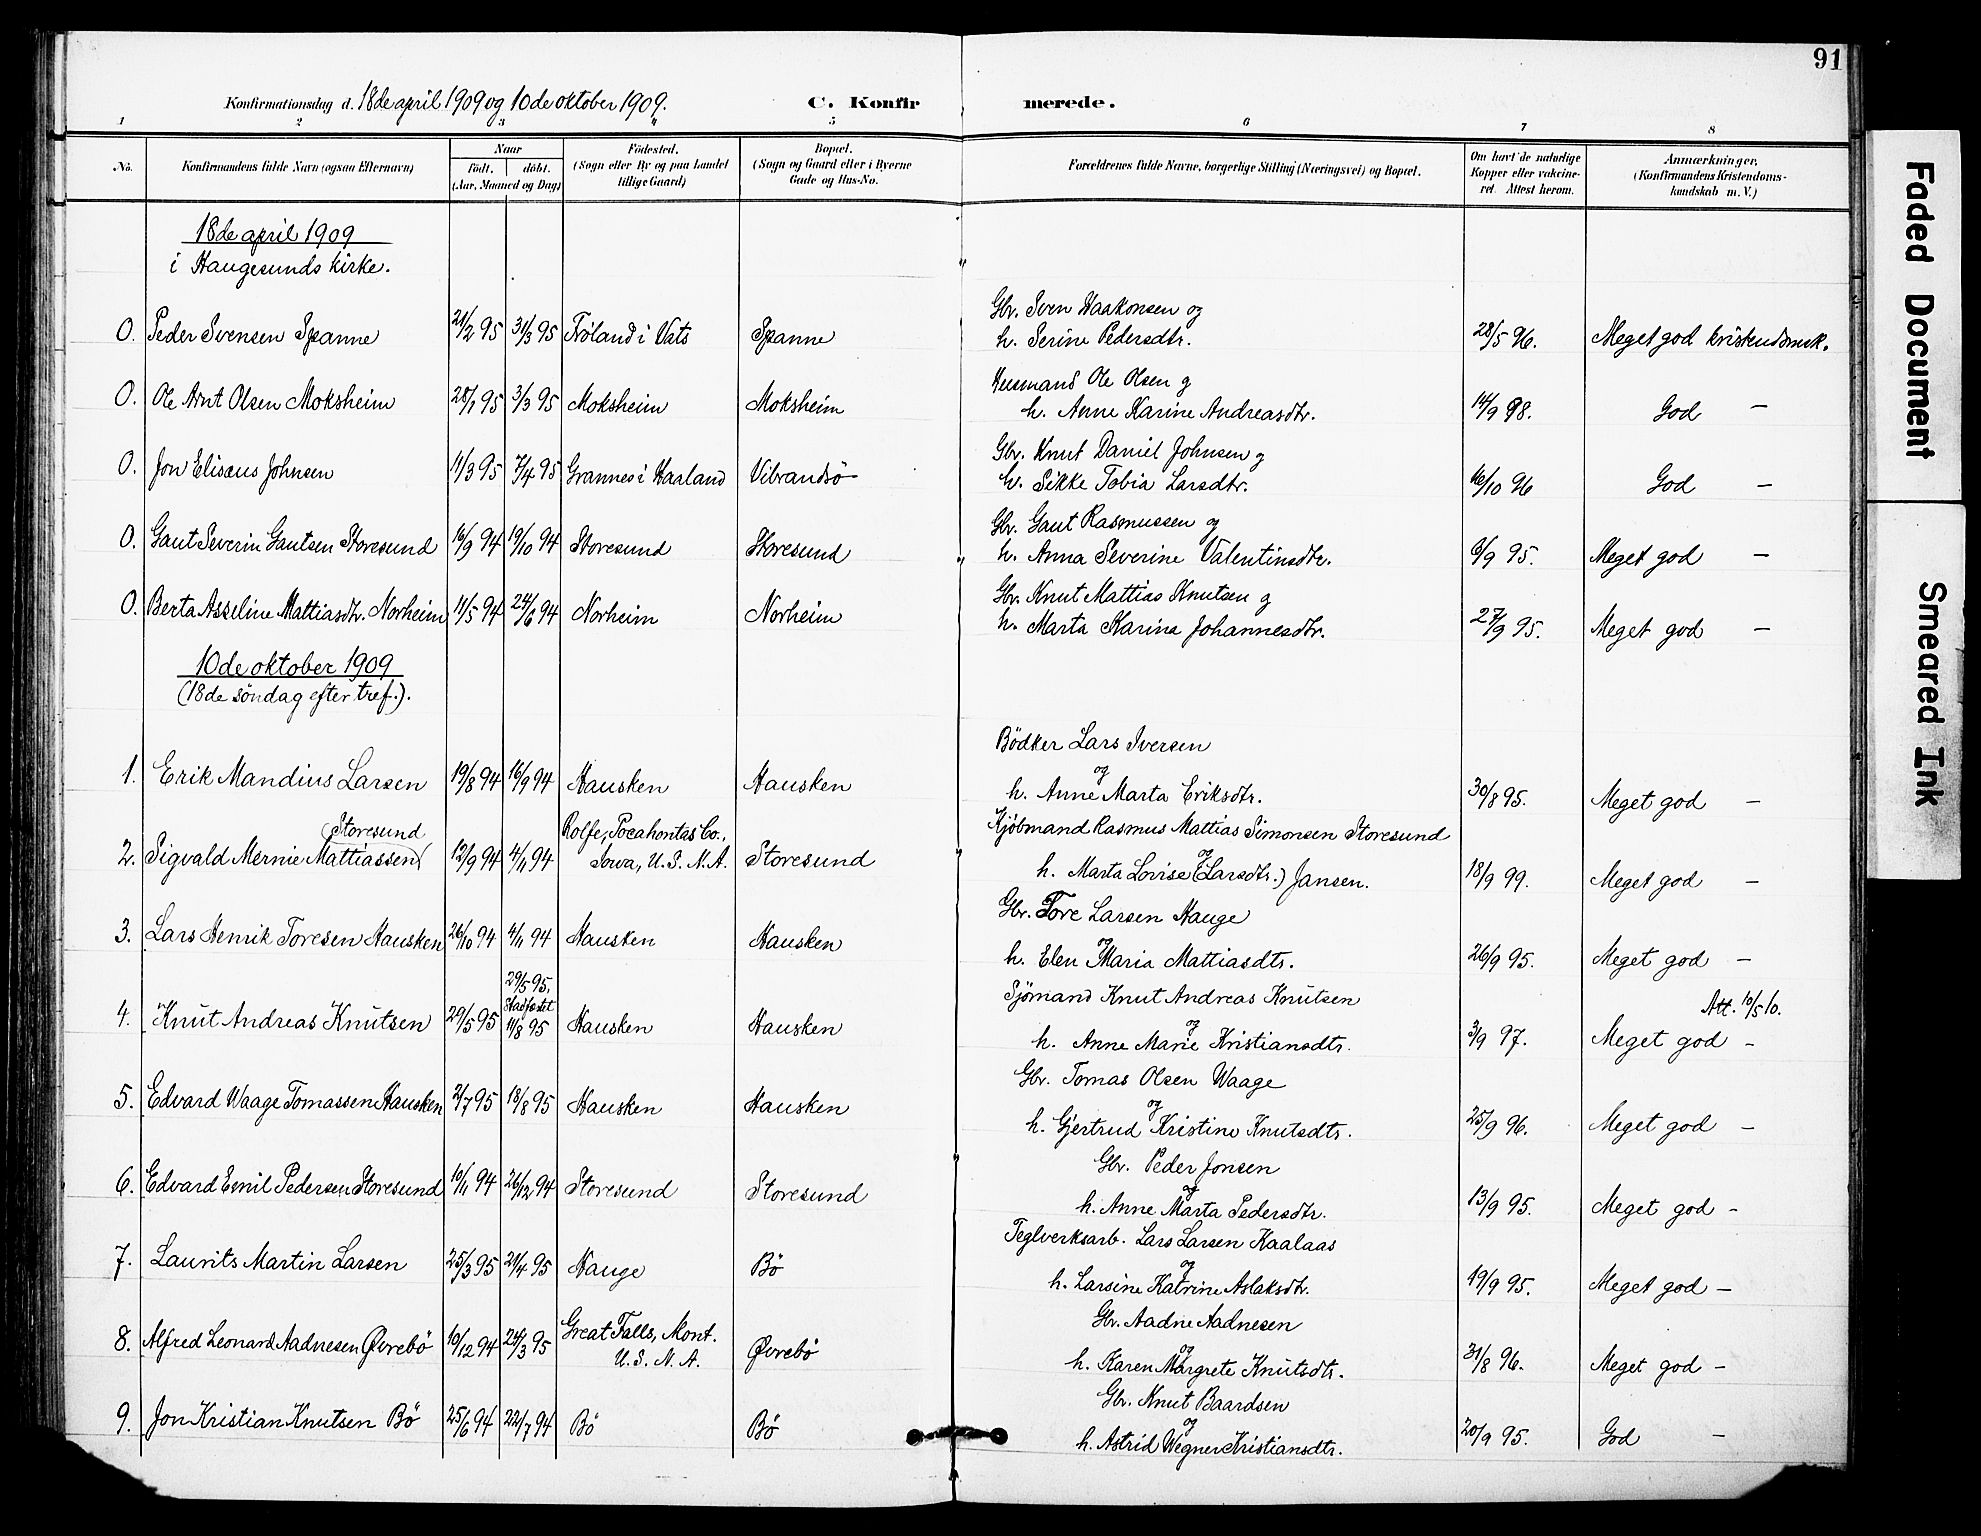 91
Konfirmationsdag d. 18de april 1909 og 10de oktober 1909. C. Konfirmerede.
1 2 3 4 5 6 7 8
No. Konfirmandens fulde Navn (ogsaa Efternavn) Naar födt. döbt. (Aar, Maaned og Dag) Födested. (Sogn eller By og paa Landet tillige Gaard) Bopæl. (Sogn og Gaard eller i Byerne Gade og Hus-No. Forældrenes fulde Navne, borgerlige Stilling (Næringsvei) og Bopæl. Om havt de naturlige Kopper eller vakcineret. Attest herom. Anmærkninger. (Konfirmandens Kristendomskundskab m. V.)
18de april 1909
i Haugesunds kirke.
Gbr. Sven Haakonsen og
0. Peder Svensen Spanne 21/2 95 31/3 95 Fröland i Vats Spanne h. Serine Pedersdtr. 28/5 96. Meget god kristendomsk.
Husmand Ole Olsen og
0. Ole Arnt Olsen Moksheim 28/1 95 3/3 95 Moksheim Moksheim h. Anne Karine Andreasdtr. 14/9 98. God —
Gbr. Knut Daniel Johnsen og
0. Jon Elisæus Johnsen 11/3 95 7/4 95 Grannes i Haaland Vibrandsö h. Sikke Tobia Larsdtr. 16/10 96 God —
Gbr. Gaut Rasmussen og
0. Gaut Severin Gautsen Storesund 16/9 94 19/10 94 Storesund Storesund h. Anna Severine Valentinsdtr. 6/9 95. Meget god —
Gbr. Knut Mattias Knutsen og
0. Berta Asseline Mattiasdtr. Norheim 11/5 94 24/6 94 Norheim Norheim h. Marta Karina Johannesdtr. 27/9 95. Meget god —
10de oktober 1909
(18de söndag efter tref.).
Bödker Lars Iversen
og
1. Erik Mandius Larsen 19/8 94 16/9 94 Hausken Hausken h. Anne Marta Eriksdtr. 30/8 95. Meget god —
Storesund Rolfe, Pocahontas Co., Kjöbmand Rasmus Mattias Simonsen Storesund
og
2. Sigvald Mernie Mattiassen 12/9 94 4/11 94 Iowa, U. S. N. A. Storesund h. Marta Lovise (Larsdtr.) Jansen. 18/9 99. Meget god —
Gbr. Tore Larsen Hauge
og
3. Lars Henrik Toresen Hausken 26/10 94 4/11 94 Hausken Hausken h. Elen Maria Mattiasdtr. 26/9 95. Meget god —
29/5 95, Stadfæstet Sjömand Knut Andreas Knutsen Att. 10/5 10.
og
4. Knut Andreas Knutsen 29/5 95 11/8 95 Hausken Hausken h. Anne Marie Kristiansdtr. 3/9 97. Meget god —
Gbr. Tomas Olsen Waage
og
5. Edvard Waage Tomassen Hausken 2/7 95 18/8 95 Hausken Hausken h. Gjertrud Kristine Knutsdtr. 25/9 96. Meget god —
Gbr. Peder Jonsen
og
6. Edvard Emil Pedersen Storesund 10/11 94 26/12 94 Storesund Storesund h. Anne Marta Pedersdtr. 13/9 95. Meget god —
Teglverksarb. Lars Larsen Kaalaas
og
7. Laurits Martin Larsen 25/3 95 21/4 95 Hauge Bö h. Larsine Katrine Aslaksdtr. 19/9 95. Meget god —
Great Falls, Mont. Gbr. Aadne Aadnesen
og
8. Alfred Leonard Aadnesen Øvrebö 10/12 94 24/3 95 U. S. N. A. Øvrebö h. Karen Margrete Knutsdtr. 31/8 96. Meget god —
Gbr. Knut Baardsen
og
9. Jon Kristian Knutsen Bö 25/6 94 22/7 94 Bö Bö h. Astrid Wegner Kristiansdtr. 20/9 95. God —
Faded Document
Smeared Ink